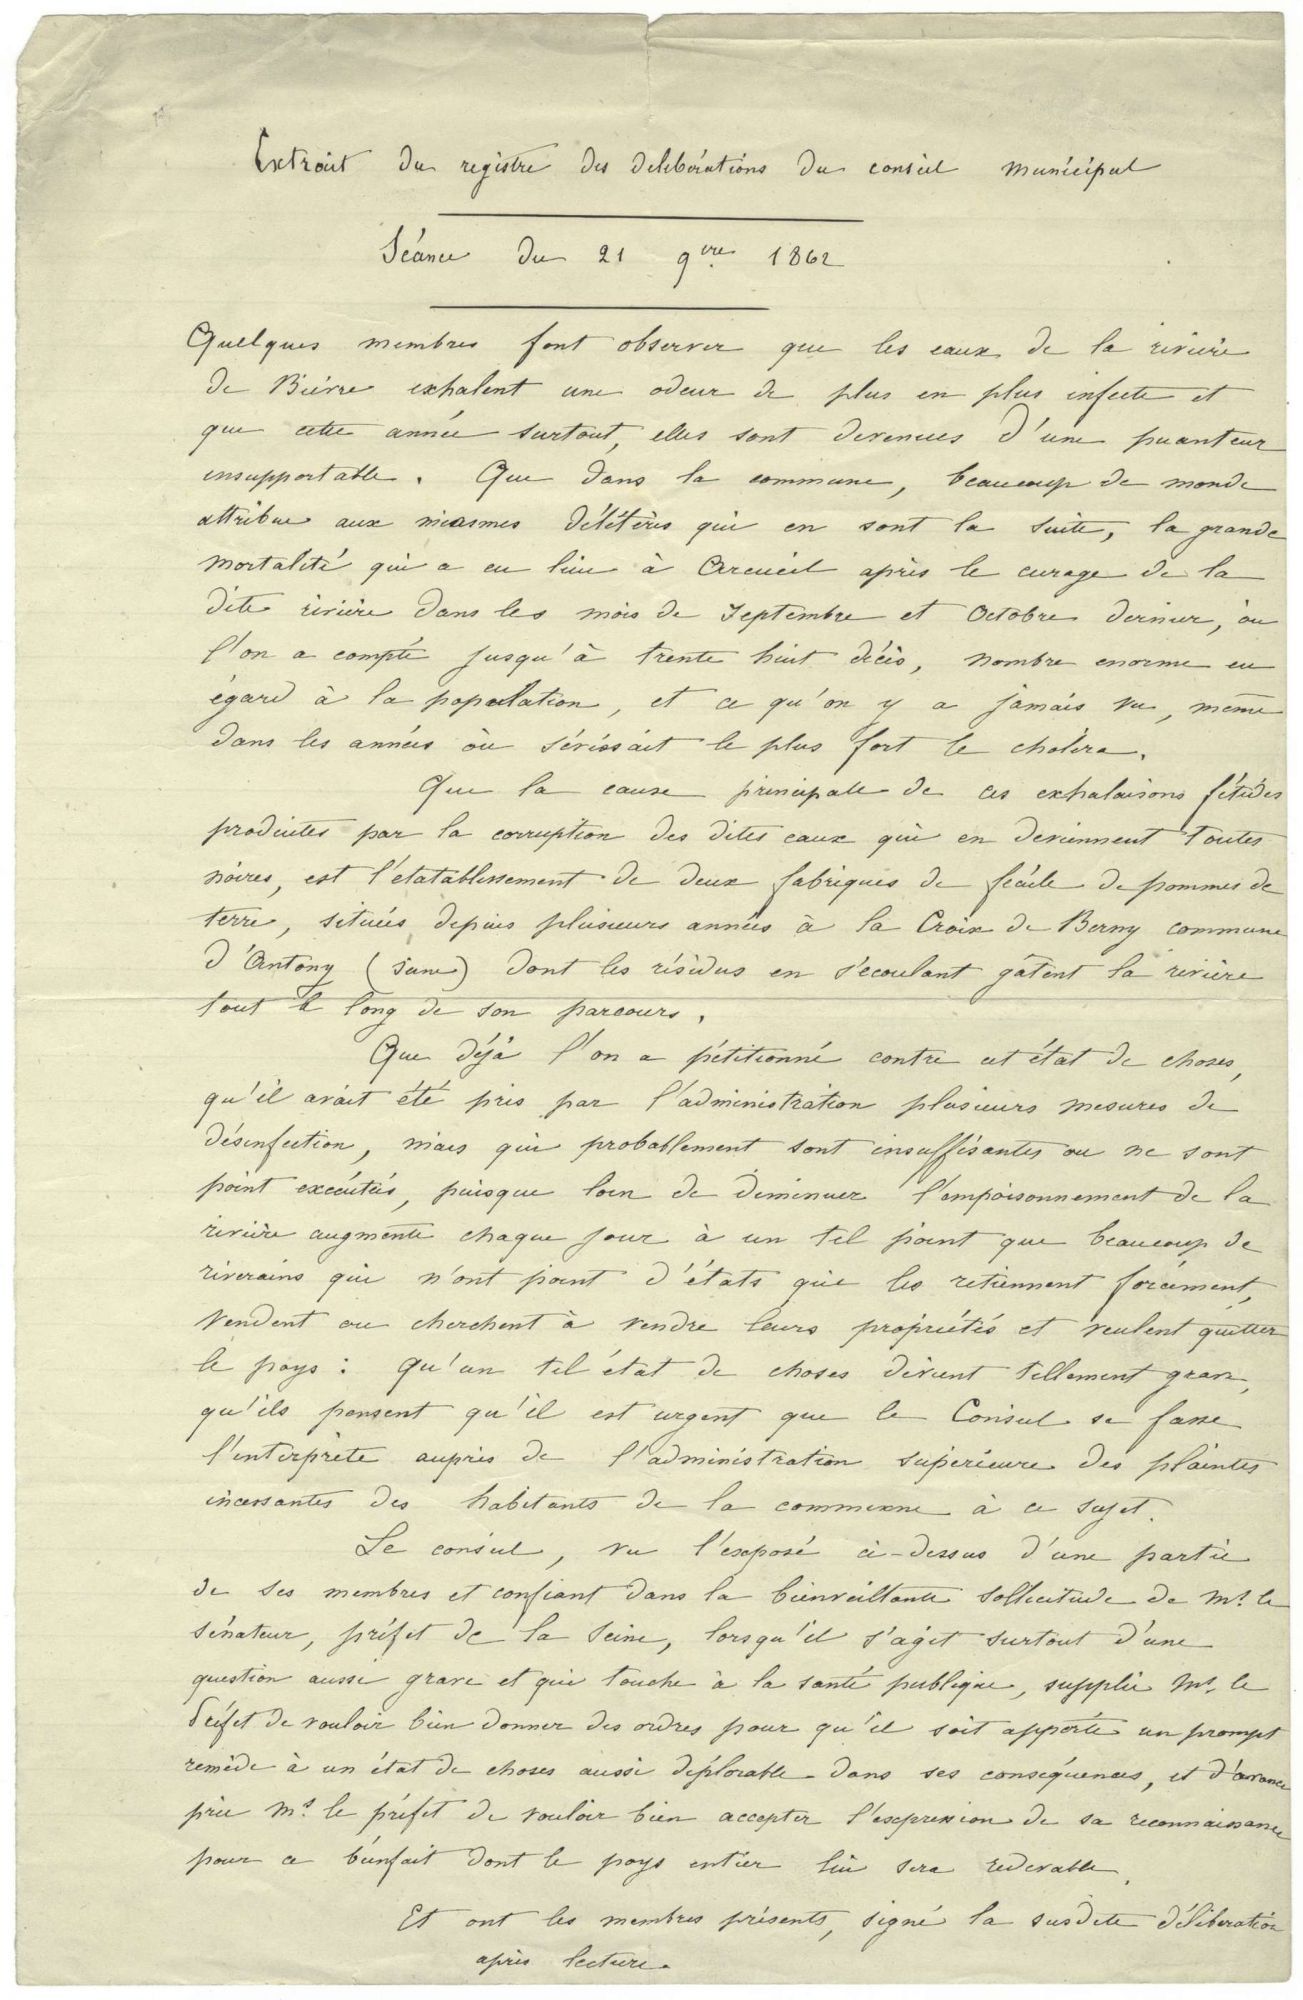 Extrait du registre des délibérations du conseil municipal
Séance du 21 9vre 1862
Quelques membres font observer que les eaux de la rivière
de Bièvre exhalent une odeur de plus en plus infecte et
que cette année surtout, elles sont devenues d'une puanteur
insupportable. Que dans la commune, beaucoup de monde
attribue aux miasmes délétères qui en sont la suite, la grande
mortalité qui a eu lieu à Arcueil après le curage de la
dite rivière dans les mois de Septembre et Octobre dernier, où
l'on a compté jusqu'à trente huit décès, nombre enorme eu
égard à la population, et ce qu'on y a jamais vu, même
dans les années où sévissait le plus fort le choléra.
Que la cause principale de ces exhalaisons fétides
produites par la corruption des dites eaux qui en deviennent toutes
noires, est l'étatablissement de deux fabriques de fécule de pommes de
terre, situées depuis plusieurs années à la Croix de Berny commune
d'Antony (seine) dont les résidus en s'ecoulant gâtent la rivière
tout le long de son parcours.
Que déjà l'on a pétitionné contre cet état de choses,
qu'il avait été pris par l'administration plusieurs mesures de
désinfection, mais qui probablement sont insuffisantes ou ne sont
point exécutées, puisque loin de diminuer l'empoisonnement de la
rivière augmente chaque jour à un tel point que beaucoup de
riverains qui n'ont point d'états qui les retiennent forcément,
vendent ou cherchent à vendre leurs propriétés et veulent quitter
le pays: qu'un tel état de choses devient tellement grave,
qu'ils pensent qu'il est urgent que le Conseil se fasse
l'interprète auprès de l'administration supérieure des plaintes
incessantes des habitants de la commune à ce sujet.
Le conseil, vu l'exposé ci-dessus d'une partie
de ses membres et confiant dans la bienveillante sollicitude de Mr. le
sénateur, préfet de la Seine, lorsqu'il s'agit surtout d'une
question aussi grave et qui touche à la santé publique, supplie Mr. le
Préfet de vouloir bien donner des ordres pour qu'il soit apporté un prompt
remède à un état de choses aussi déplorable dans ses conséquences, et d'avance
prie Mr. le préfet de vouloir bien accepter l'expression de sa reconnaissance
pour ce bienfait dont le pays entier lui sera redevable.
Et ont les membres présents, signé la susdite délibération
après lecture.